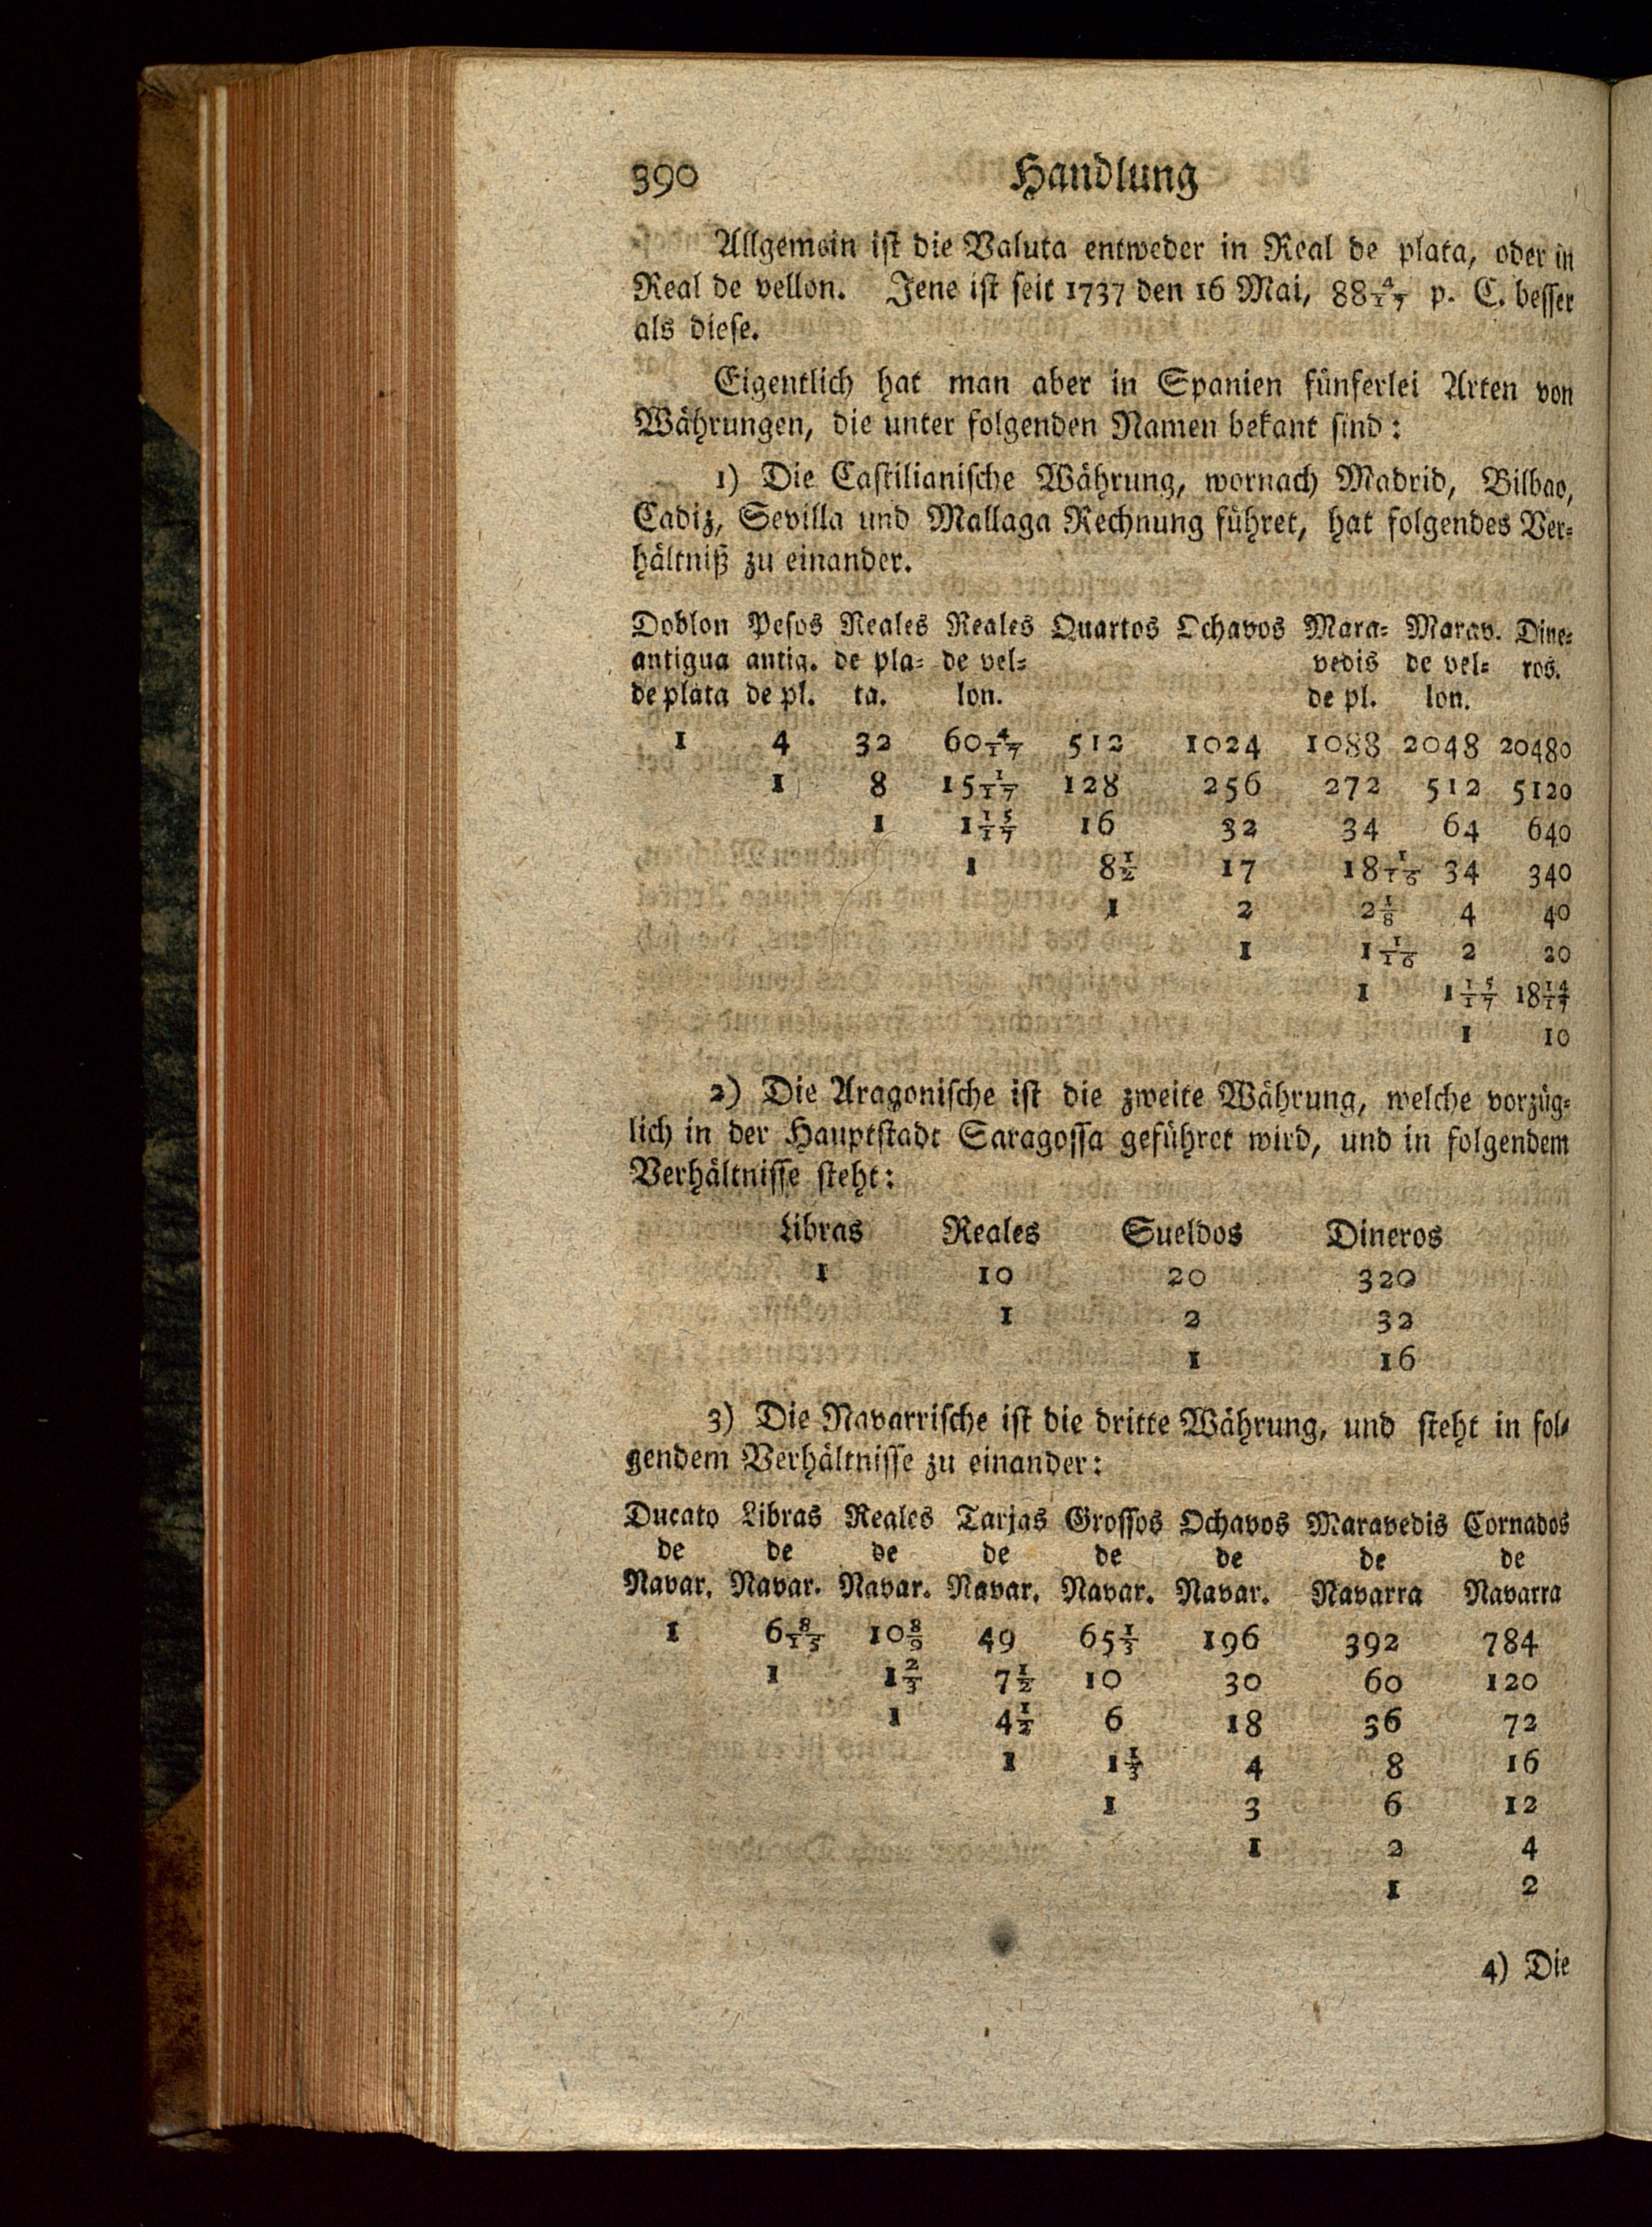 390 Handlung
Allgemein ist die Valuta entweder in Real de plata, oder in
Real de vellon. Jene ist seit 1737 den 16 Mai, 88 4/17 p. C. besser
als diese.
Eigentlich hat man aber in Spanien fünferlei Arten von
Währungen, die unter folgenden Namen bekant sind:
1) Die Castilianische Währung, wornach Madrid, Bilbao,
Cadiz, Sevilla und Mallaga Rechnung führet, hat folgendes Ver-
hältniß zu einander.
Doblon Pesos Reales Reales Quartos Ochavos Mara- Marav. Dine-
antigua antig. de pla- de vel- vedis de vel- ros.
de plata de pl. ta. lon. de pl. lon.
1 4 32 60 4/17 512 1024 1088 2048 20480
1 8 15 1/17 128 256 272 512 5120
1 1 15/17 16 32 34 64 640
1 8 1/2 17 18 1/16 34 340
1 2 2 1/8 4 40
1 1 1/16 2 20
1 1 15/17 18 14/17
1 10
2) Die Aragonische ist die zweite Währung, welche vorzüg-
lich in der Hauptstadt Saragossa geführet wird, und in folgendem
Verhältnisse steht:
Libras Reales Sueldos Dineros
1 10 20 320
1 2 32
1 16
3) Die Navarrische ist die dritte Währung, und steht in fol-
gendem Verhältnisse zu einander:
Ducato Libras Reales Tarjas Grossos Ochavos Maravedis Cornados
de de de de de de de de
Navar. Navar. Navar. Navar. Navar. Navar. Navarra Navarra
1 6 8/15 10 8/9 49 65 1/3 196 392 784
1 1 2/3 7 1/2 10 30 60 120
1 4 1/2 6 18 36 72
1 1 1/3 4 8 16
1 3 6 12
1 2 4
1 2
4) Die